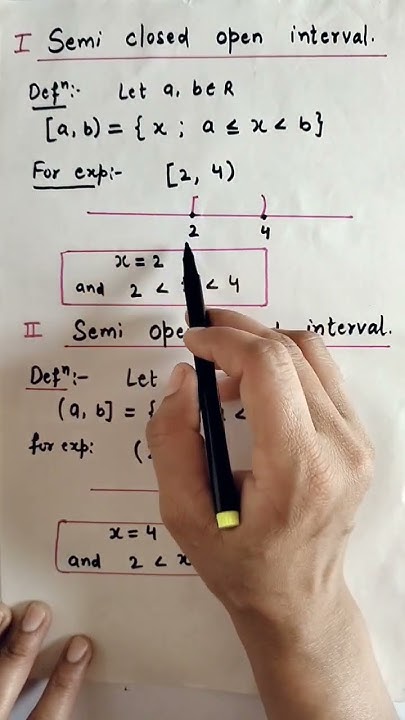 I Semi closed open interval.
Defⁿ:- Let a, b∈R
[a, b) = { x ; a ≤ x < b}
For exp:- [2, 4)
[ )
2 4
x = 2
and 2 < < 4
II Semi interval.
Defⁿ:- Let
(a, b] = { <
for exp: (
x = 4
and 2 < x